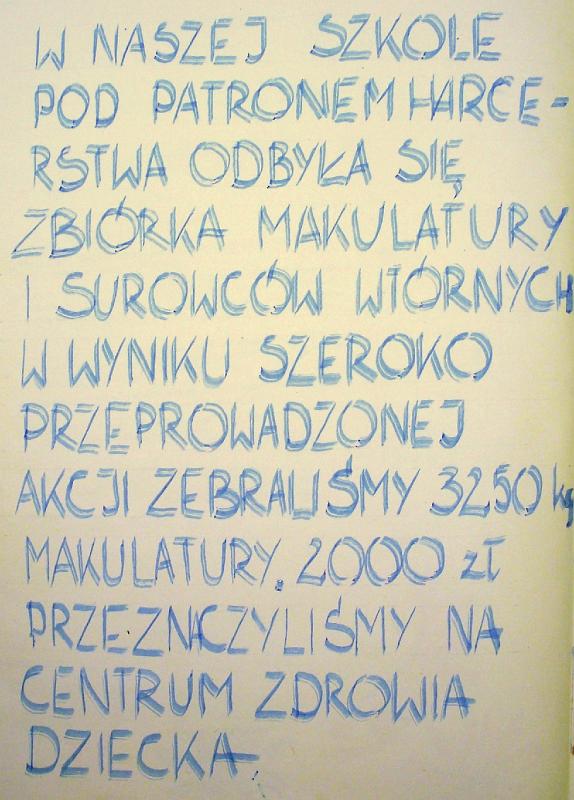 W NASZEJ SZKOLE
POD PATRONEM HARCE-
RSTWA ODBYŁA SIĘ
ZBIÓRKA MAKULATURY
I SUROWCÓW WTÓRNYCH
W WYNIKU SZEROKO
PRZEPROWADZONEJ
AKCJI ZEBRALIŚMY 3250 kg
MAKULATURY. 2000 zł
PRZEZNACZYLIŚMY NA
CENTRUM ZDROWIA
DZIECKA.